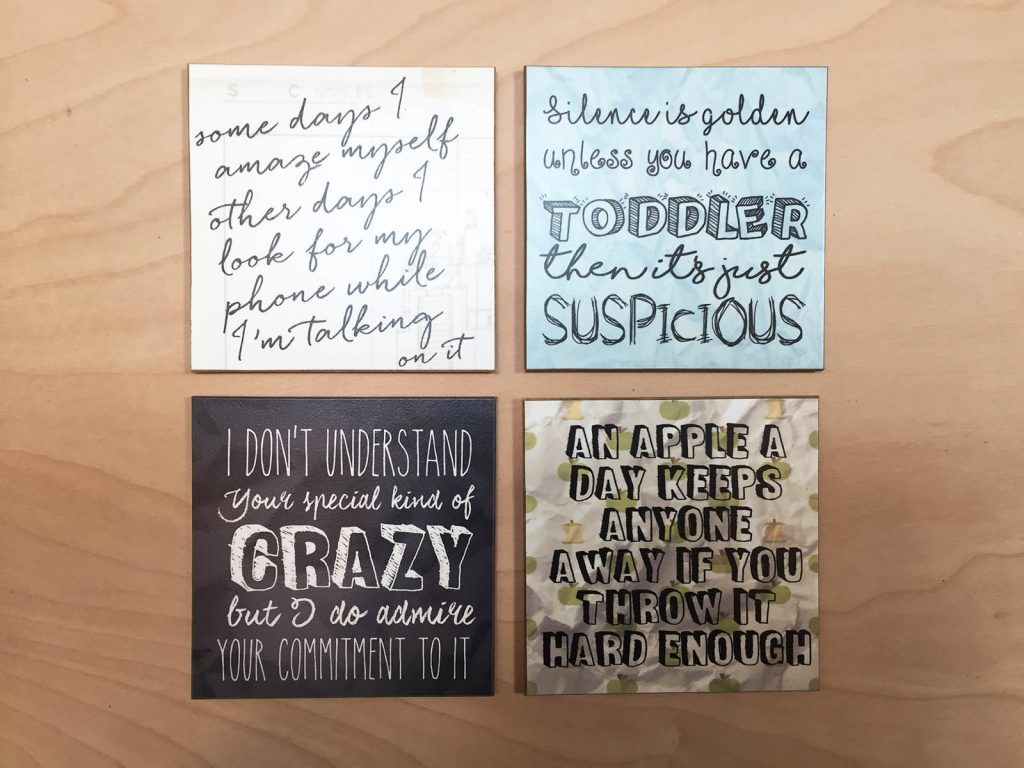 some days I
amaze myself
other days I
look for my
phone while
I'm talking
on it
Silence is golden
unless you have a
TODDLER
then it's just
SUSPICIOUS
I DON'T UNDERSTAND
Your special kind of
CRAZY
but I do admire
YOUR COMMITMENT TO IT
AN APPLE A
DAY KEEPS
ANYONE
AWAY IF YOU
THROW IT
HARD ENOUGH